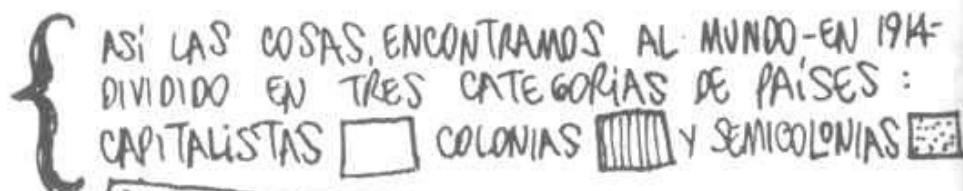 ASÍ LAS COSAS, ENCONTRAMOS AL MUNDO-EN 1914-
DIVIDIDO EN TRES CATEGORÍAS DE PAÍSES :
CAPITALISTAS COLONIAS Y SEMICOLONIAS